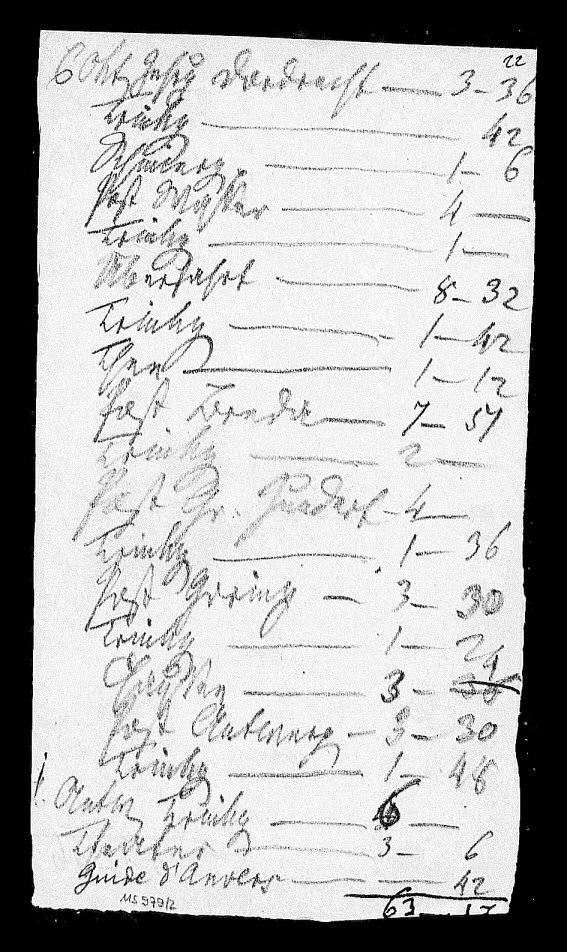 22
6 Okt. Dordrecht — 3 – 36
Trinkg — 42
1 – 6
Post — 4 —
Trinkg — 1 —
Überfahrt — 8 – 32
Trinkg — 1 – 42
Thee — 1 – 12
Post Breda — 7 – 51
Trinkg — 2 —
Post Gr. Zundert – 4 —
Trinkg — 1 – 36
Post — 3 – 30
Trinkg — 1 – 24
— 3 –
Post Antwerp – 3 – 30
Trinkg — 1 – 48
Antw Trinkg — 6 —
Theater — 3 – 6
Guide d'Anvers — 42
63 17
MS 979/2